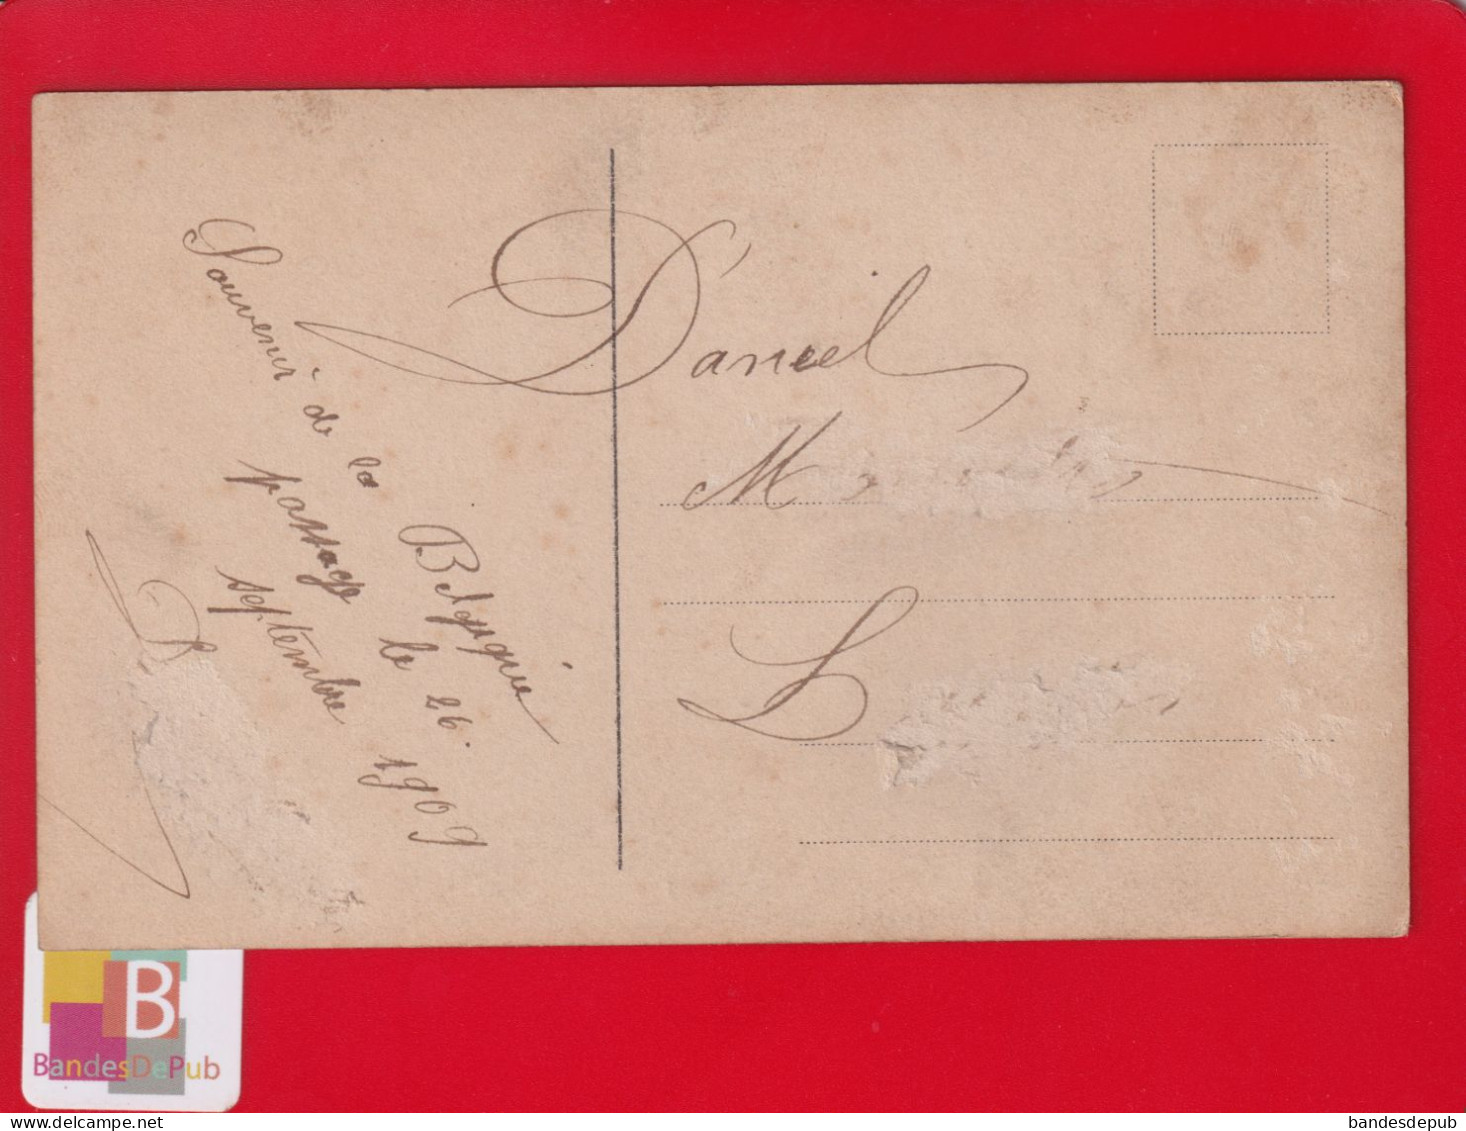 Souvenir de la Belgique
passage le 26
septembre 1909
D
Daniel
M
L
B
BandesDePub
bandesdepub